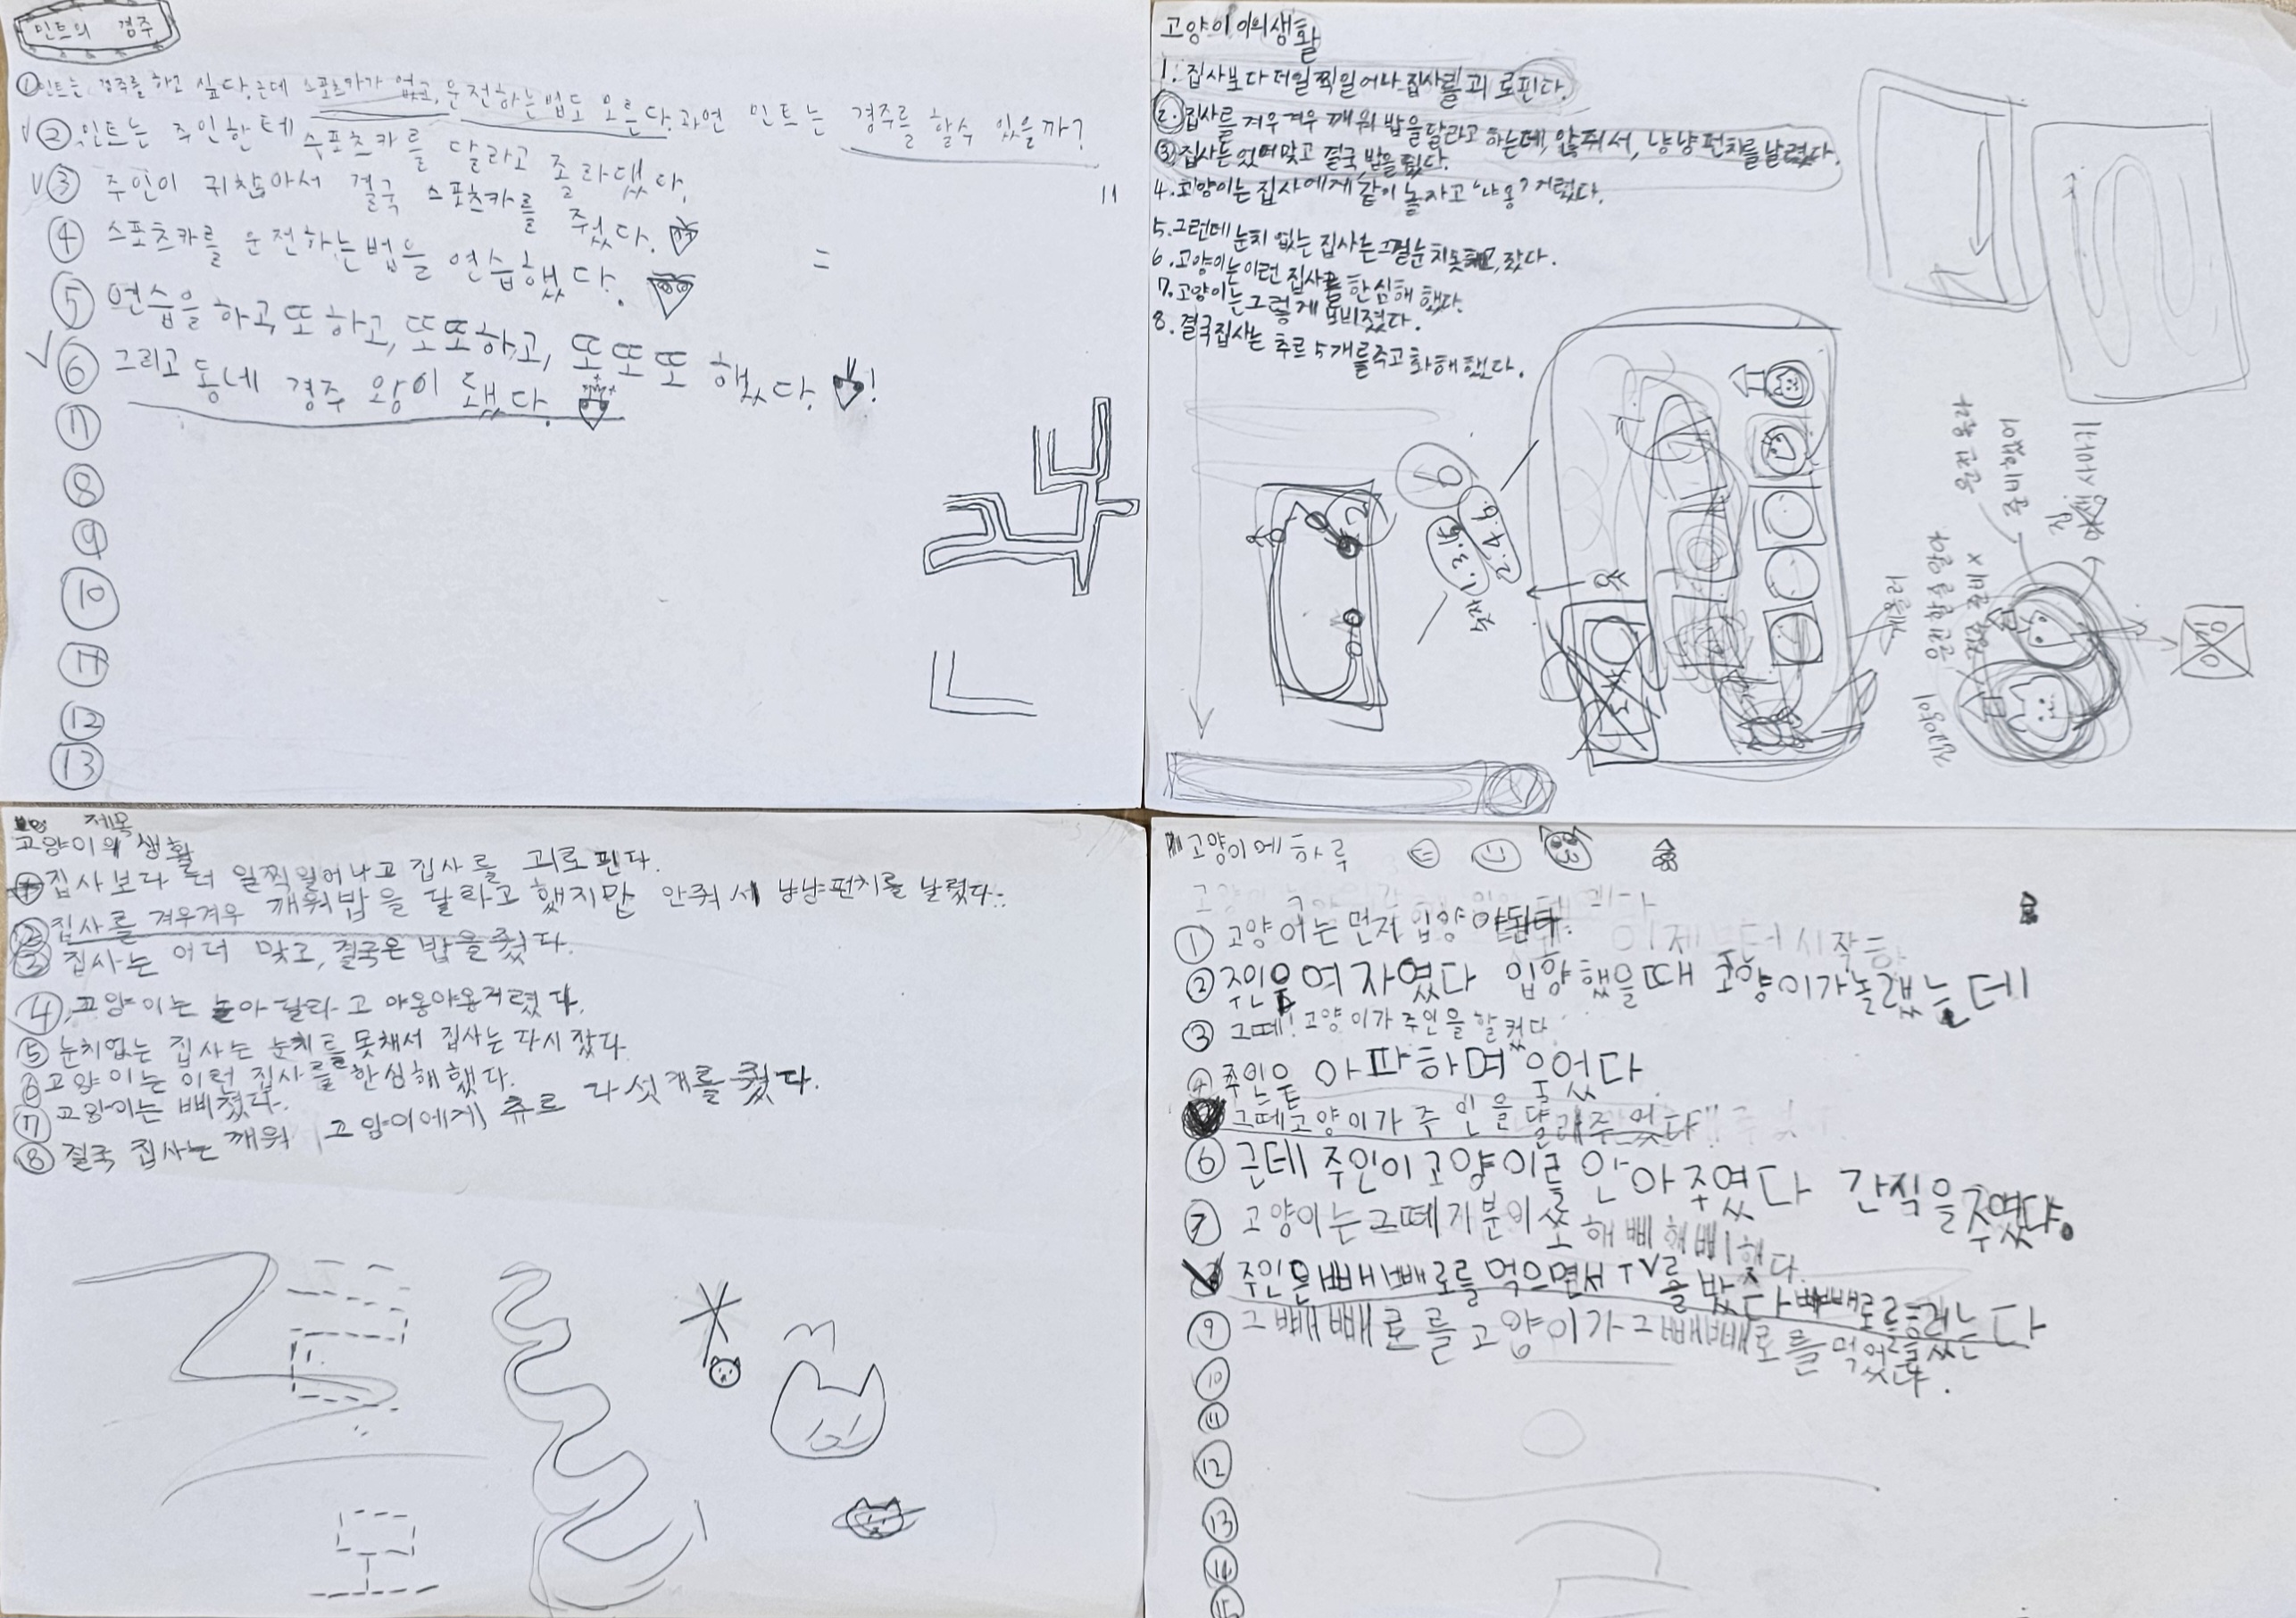 민트의 경주
① 민트는 경주를 하고 싶다. 근데 스포츠카가 없고, 운전하는법도 모른다. 과연 민트는 경주를 할수 있을까?
② 민트는 주인한테 스포츠카를 달라고 졸라댔다.
③ 주인이 귀찮아서 결국 스포츠카를 줬다.
④ 스포츠카를 운전하는법을 연습했다.
⑤ 연습을 하고, 또 하고, 또또하고, 또또또 했다. !
⑥ 그리고 동네 경주 왕이 됐다.
⑦
⑧
⑨
⑩
⑪
⑫
⑬
고양이의생활
1. 집사보다 더일찍일어나 집사를 괴로핀다.
②. 집사를 겨우겨우 깨워 밥을달라고 하는데, 않줘서, 냥냥펀치를 날렸다.
③ 집사는 맞고 결국, 밥을 줬다.
4. 고양이는 집사에게 같이 놀자고 '냐옹' 거렸다.
5. 그런데 눈치 없는 집사는 그걸눈치못 잤다.
6. 고양이는 이런 집사를 한심해 했다.
7. 고양이는 그렇게 삐졌다.
8. 결국집사는 츄르 5개를주고 화해했다.
2. 4. 6
제목
고양이의 생활
집사보다 더 일찍일어나고 집사를 괴로핀다.
② 집사를 겨우겨우 깨워밥을 달라고 했지만 안줘서 냥냥펀치를 날렸다..
③ 집사는 맞고, 결국은 밥을 줬다.
④, 고양이는 놀아 달라고 야옹야옹거렸다.
⑤ 눈치없는 집사는 눈치를 못채서 집사는 다시 잤다.
⑥ 고양이는 이런 집사를 한심해했다.
⑦ 고양이는 삐졌다.
⑧ 결국 집사는 깨워 고양이에게 츄르 다섯개를 줬다.
고양이에 하루
① 고양이는 먼저 입양
② 주인은 여자였다 입양했을때 고양이가놀랬는데
③ 그떼! 고양이가 주인을 할켰다
④ 주인은 아파하며 울었다
그떼고양이가 주인을 달래주었다
⑥ 근데 주인이고양이를 안아주였다 간식을 주였다.
⑦ 고양이는그떼기분이 해삐해삐했다.
주인은빼빼로를 먹으면서 TV를 밨다
⑨ 그빼빼로를고양이가그빼빼로를 먹었다.
⑩
⑪
⑫
⑬
⑭
⑮